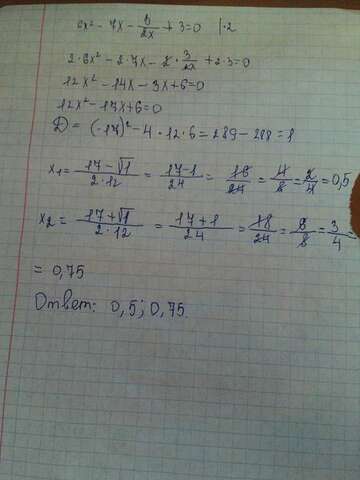 6x² - 7x - 3/2x + 3 = 0 |·2
2·6x² - 2·7x - 2·3/2x + 2·3 = 0
12x² - 14x - 3x + 6 = 0
12x² - 17x + 6 = 0
D = (-17)² - 4·12·6 = 289 - 288 = 1
x₁ = 17-√1/2·12 = 17-1/24 = 16/24 = 4/8 = 2/4 = 0,5
x₂ = 17+√1/2·12 = 17+1/24 = 18/24 = 6/8 = 3/4
= 0,75
Ответ: 0,5; 0,75.